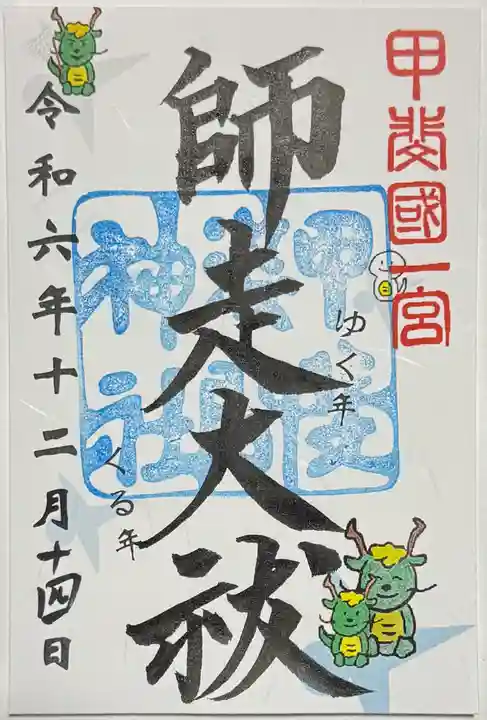 甲斐國一宮
ゆく年
師走大祓
甲斐奈神社
くる年
令和六年十二月十四日